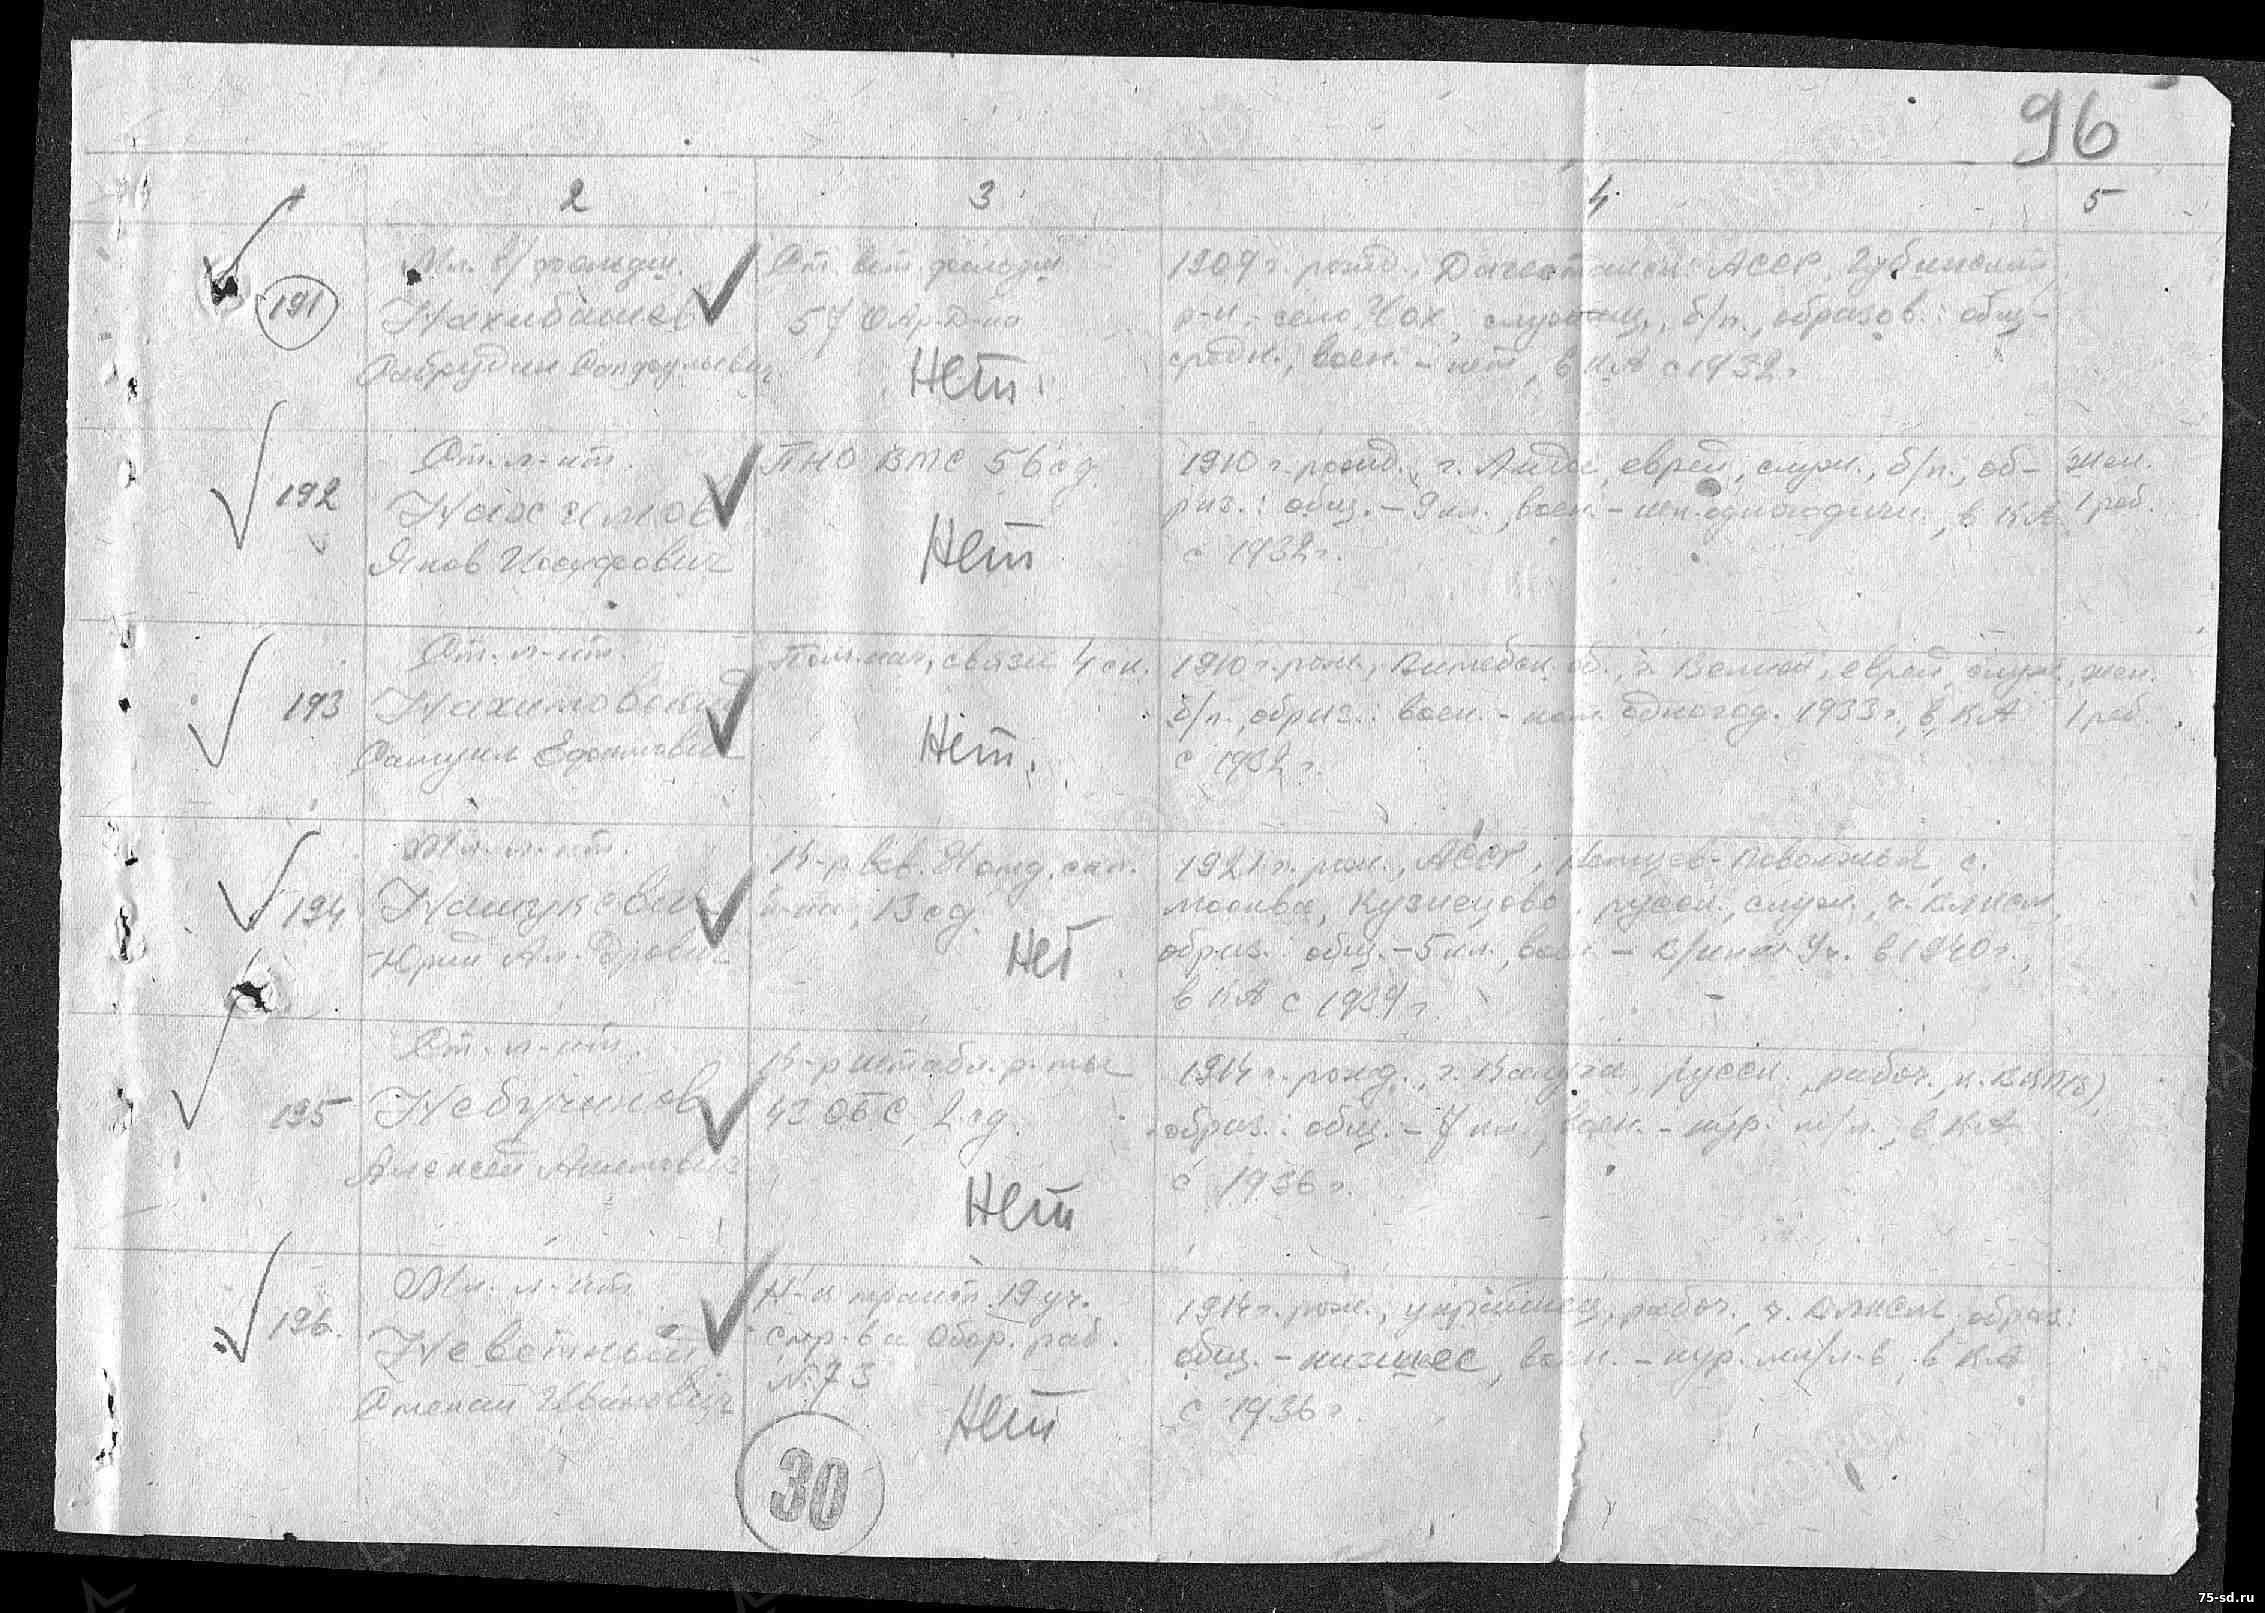 96
2 3 4 5
191
Мл. в/фельдш.
Нахибашев
Ст. вет. фельдш.
57 ОАр. Д-на
Нет.
1909 г. рожд., Дагестанск. АССР, Гунибский
р-н, село Чох, служащ., б/п., образов.: общ.-
средн., воен. - нет, в КА с 1932 г.
192
Ст. л-нт.
Нахимов
Яков Иосифович
ПНО ВТС 56 сд
Нет
1910 г. рожд., г. Лида, еврей, служ., б/п., об-
раз.: общ. - 9 кл., воен. - одногодичн., в КА
с 1932 г.
жен.
1 реб.
193
Ст. л-нт.
Нахимовский
Самуил Ефимович
Пом. нач. связи 4 ск.
Нет.
1910 г. рож., Витебск. об., г. Велиж, еврей, служ.,
б/п., образ.: воен. - одногод. 1933 г., в КА
с 1932 г.
жен.
1 реб.
194
Мл. л-нт.
Нашукевич
Юрий Ал-дрович
К-р вв. отд. сап.
б-на, 13 сд
Нет
1921 г. рож., АССР, Немцев-Поволжья, с.
Кузнецово, русск., служ., ч. ВЛКСМ,
образ.: общ. - 5 кл., воен. - Уч. в 1940 г.,
в КА с 1939 г.
195
Ст. л-нт.
Небучинов
Алексей
К-р штабн. р-ты
42 ОБС, 2 сд.
Нет
1914 г. рожд., г. Калуга, русск., рабоч., к. ВКП(б),
образ.: общ. - 7 кл., воен. - кур. м/л., в КА
с 1936 г.
196.
Мл. л-нт
Неветный
Степан Иванович
Н-к трансп. 19 уч.
стр-ва обор. раб.
№ 73
Нет
1914 г. рож., украинец, рабоч., ч. ВЛКСМ, образ.:
общ. - низшее, воен. - кур. мл/л-в, в КА
с 1936 г.
30
75-sd.ru